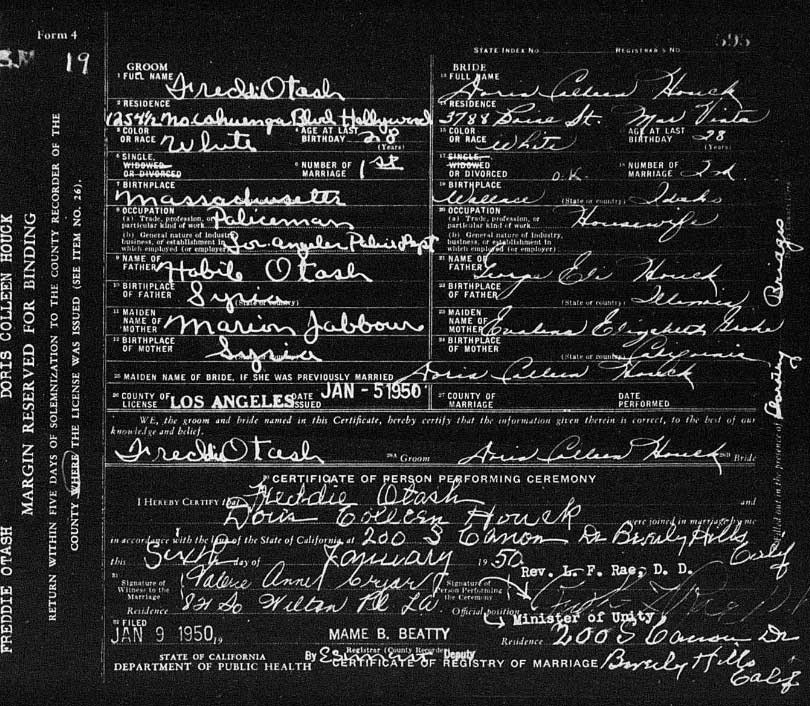 Form 4
19
595
STATE INDEX No.
REGISTRAR'S No.
GROOM
1 FULL NAME Freddie Otash
2 RESIDENCE 1254½ No. Cahuenga Blvd Hollywood
3 COLOR OR RACE White
4 AGE AT LAST BIRTHDAY 28 (Years)
5 SINGLE, WIDOWED OR DIVORCED
6 NUMBER OF MARRIAGE 1st
7 BIRTHPLACE Massachusetts
8 OCCUPATION
(a) Trade, profession, or particular kind of work Policeman
(b) General nature of industry, business, or establishment in which employed (or employer) Los Angeles Police Dept
9 NAME OF FATHER Habib Otash
10 BIRTHPLACE OF FATHER Syria (State or country)
11 MAIDEN NAME OF MOTHER Marion Jabbour
12 BIRTHPLACE OF MOTHER Syria
BRIDE
13 FULL NAME Doris Colleen Houck
14 RESIDENCE 3788 Boise St. Mar Vista
15 COLOR OR RACE White
16 AGE AT LAST BIRTHDAY 28 (Years)
17 SINGLE, WIDOWED OR DIVORCED O.K.
18 NUMBER OF MARRIAGE 2nd.
19 BIRTHPLACE Wallace (State or country) Idaho
20 OCCUPATION
(a) Trade, profession, or particular kind of work Housewife
(b) General nature of industry, business, or establishment in which employed (or employer)
21 NAME OF FATHER George Eli Houck
22 BIRTHPLACE OF FATHER (State or country) Illinois
23 MAIDEN NAME OF MOTHER Evalena Elizabeth
24 BIRTHPLACE OF MOTHER (State or country) California
25 MAIDEN NAME OF BRIDE, IF SHE WAS PREVIOUSLY MARRIED Doris Colleen Houck
26 COUNTY OF LICENSE LOS ANGELES DATE ISSUED JAN - 5 1950
27 COUNTY OF MARRIAGE
DATE PERFORMED
WE, the groom and bride named in this Certificate, hereby certify that the information given therein is correct, to the best of our
knowledge and belief.
Freddie Otash 28A Groom Doris Colleen Houck 28B Bride
CERTIFICATE OF PERSON PERFORMING CEREMONY
I HEREBY CERTIFY that Freddie Otash and
Doris Colleen Houck were joined in marriage by me
in accordance with the laws of the State of California, at 200 S Canon Dr Beverly Hills Calif
this Sixth day of January 1950
Signature of Witness to the Marriage Valerie Anne Cryar
Residence 824 So Wilton Pl LA
Signature of Person Performing the Ceremony
Rev. L. F. Rae, D. D.
Official position Minister of Unity
Residence 200 S Canon Dr
Beverly Hills
Calif
FILED JAN 9 1950, 19
MAME B. BEATTY
Registrar (County Recorder)
By Deputy
STATE OF CALIFORNIA
DEPARTMENT OF PUBLIC HEALTH
CERTIFICATE OF REGISTRY OF MARRIAGE
FREDDIE OTASH
DORIS COLLEEN HOUCK
MARGIN RESERVED FOR BINDING
RETURN WITHIN FIVE DAYS OF SOLEMNIZATION TO THE COUNTY RECORDER OF THE
COUNTY WHERE THE LICENSE WAS ISSUED (SEE ITEM NO. 26).
Filled out in the presence of